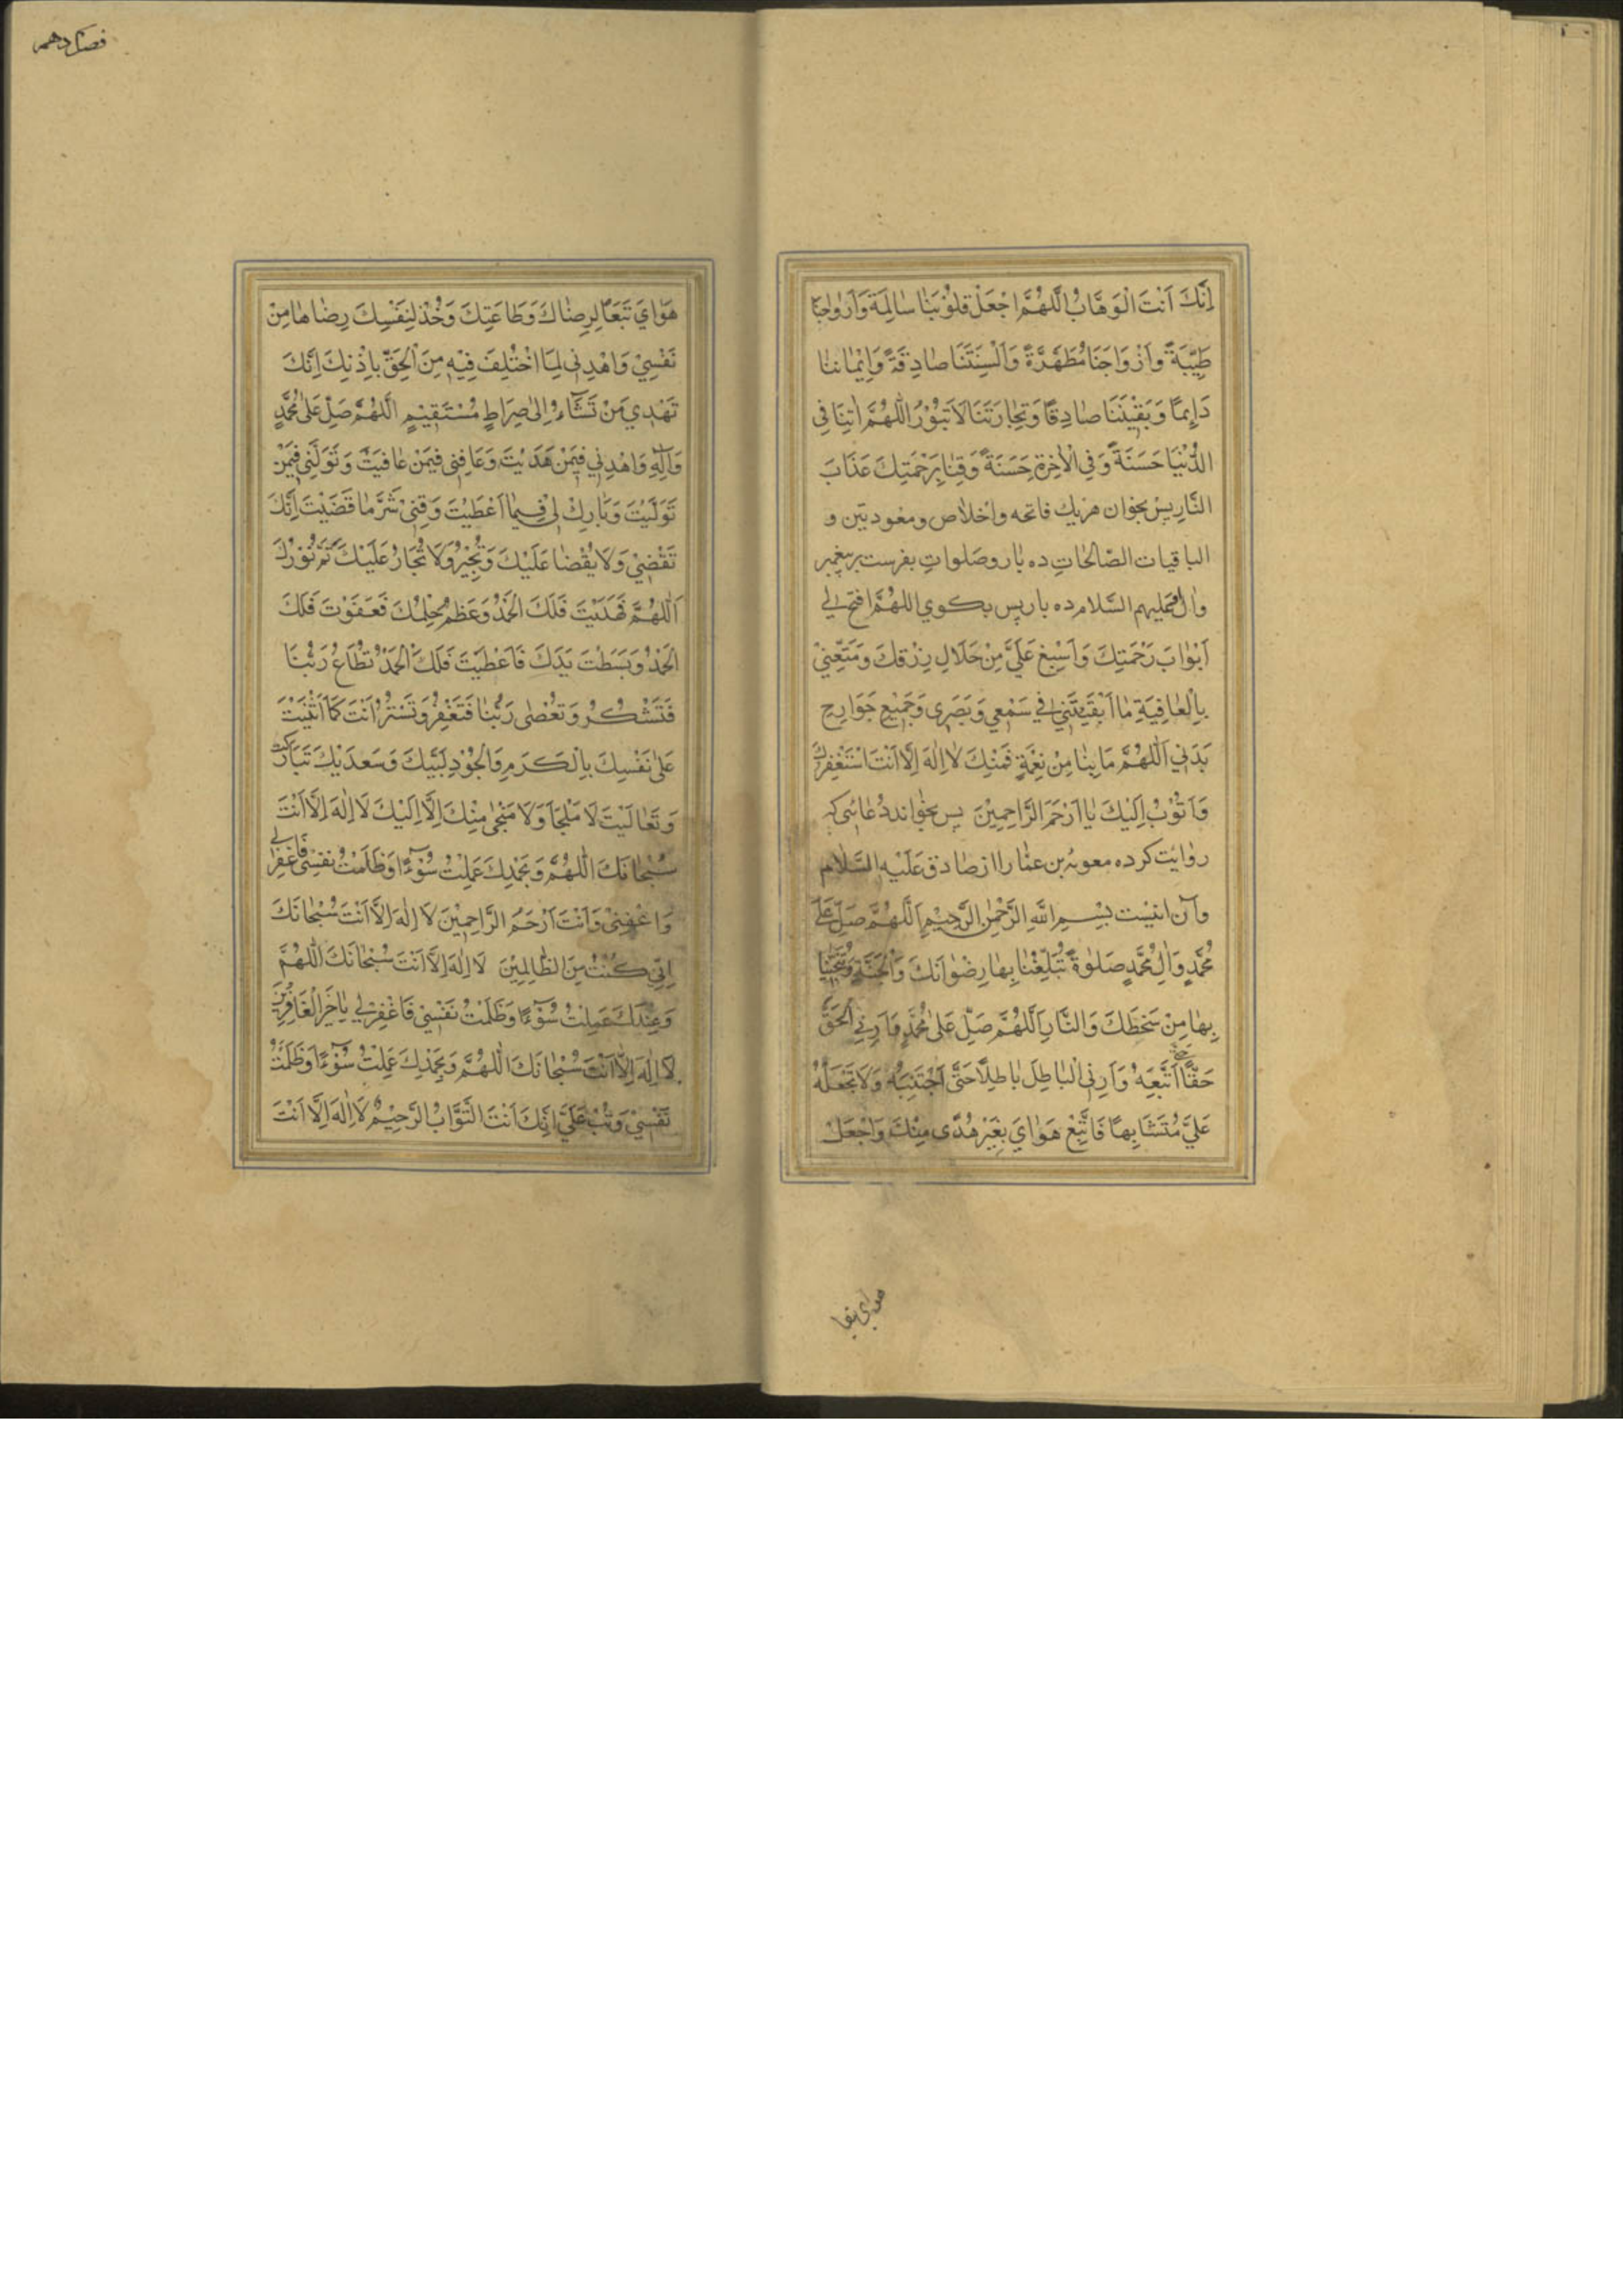 اِنَّكَ اَنْتَ الْوَهَّابُ اَللّٰهُمَّ اجْعَلْ قُلُوْبَنَا سَالِمَةً وَاَرْوَاحَنَا
طَيِّبَةً وَاَزْوَاجَنَا مُطَهَّرَةً وَاَلْسِنَتَنَا صَادِقَةً وَاِيْمَانَنَا
دَائِمًا وَيَقِيْنَنَا صَادِقًا وَتِجَارَتَنَا لَا تَبُوْرُ اَللّٰهُمَّ اٰتِنَا فِي
الدُّنْيَا حَسَنَةً وَفِي الْاٰخِرَةِ حَسَنَةً وَقِنَا بِرَحْمَتِكَ عَذَابَ
النَّارِ پس بخوان هريك فاتحه واخلاص ومعودتين و
الباقيات الصّالحات ده بار وصلوات بفرست بر پيغمبر
وآل عليهم السّلام ده بار پس بكوي اللهُمَّ افْتَحْ لِي
اَبْوَابَ رَحْمَتِكَ وَاَسْبِغْ عَلَيَّ مِنْ حَلَالِ رِزْقِكَ وَمَتِّعْنِيْ
بِالْعَافِيَةِ مَا اَبْقَيْتَنِي فِي سَمْعِي وَبَصَرِي وَجَمِيْعِ جَوَارِحِ
بَدَنِي اَللّٰهُمَّ مَا بِنَا مِنْ نِعْمَةٍ فَمِنْكَ لَا اِلٰهَ اِلَّا اَنْتَ اَسْتَغْفِرُكَ
وَاَتُوْبُ اِلَيْكَ يَا اَرْحَمَ الرَّاحِمِيْنَ پس بخواند دُعائى كه
روايت كرده معوية بن عمار را از صادق عَلَيْهِ السَّلام
وآن اينست بِسْمِ اللهِ الرَّحْمٰنِ الرَّحِيْمِ اَللّٰهُمَّ صَلِّ عَلٰى
مُحَمَّدٍ وَاٰلِ مُحَمَّدٍ صَلٰوةً تُبَلِّغُنَا بِهَا رِضْوَانَكَ وَالْجَنَّةَ وَتُنَجِّيْنَا
بِهَا مِنْ سَخَطِكَ وَالنَّارِ اَللّٰهُمَّ صَلِّ عَلٰى مُحَمَّدٍ وَاَرِنِي الْحَقَّ
حَقًّا اَتَّبِعَهُ وَاَرِنِي الْبَاطِلَ بَاطِلًا حَتّٰى اَجْتَنِبَهُ وَلَا تَجْعَلْهُ
عَلَيَّ مُتَشَابِهًا فَاَتَّبِعْ هَوَايَ بِغَيْرِ هُدًى مِنْكَ وَاجْعَلْ
هواي تبعا
فصل دهم
هَوَايَ تَبَعًا لِرِضَاكَ وَطَاعَتِكَ وَخُذْ لِنَفْسِكَ رِضَاهَا مِنْ
نَفْسِيْ وَاهْدِنِي لِمَا اخْتُلِفَ فِيْهِ مِنَ الْحَقِّ بِاِذْنِكَ اِنَّكَ
تَهْدِي مَنْ تَشَاءُ اِلٰى صِرَاطٍ مُسْتَقِيْمٍ اَللّٰهُمَّ صَلِّ عَلٰى مُحَمَّدٍ
وَاٰلِهِ وَاهْدِنِي فِيْمَنْ هَدَيْتَ وَعَافِنِي فِيْمَنْ عَافَيْتَ وَتَوَلَّنِي فِيْمَنْ
تَوَلَّيْتَ وَبَارِكْ لِي فِيمَا اَعْطَيْتَ وَقِنِيْ شَرَّ مَا قَضَيْتَ اِنَّكَ
تَقْضِيْ وَلَا يُقْضَا عَلَيْكَ وَتُجِيْرُ وَلَا يُجَارُ عَلَيْكَ تَمَّ نُوْرُكَ
اَللّٰهُمَّ فَهَدَيْتَ فَلَكَ الْحَمْدُ وَعَظُمَ حِلْمُكَ فَعَفَوْتَ فَلَكَ
الْحَمْدُ وَبَسَطْتَ يَدَكَ فَاَعْطَيْتَ فَلَكَ الْحَمْدُ تُطَاعُ رَبُّنَا
فَتَشْكُرُ وَتُعْصٰى رَبُّنَا فَتَغْفِرُ وَتَسْتُرُ اَنْتَ كَمَا اَثْنَيْتَ
عَلٰى نَفْسِكَ بِالْكَرَمِ وَالْجُوْدِ لَبَّيْكَ وَسَعْدَيْكَ تَبَارَكْتَ
وَتَعَالَيْتَ لَا مَلْجَأَ وَلَا مَنْجٰى مِنْكَ اِلَّا اِلَيْكَ لَا اِلٰهَ اِلَّا اَنْتَ
سُبْحَانَكَ اللّٰهُمَّ وَبِحَمْدِكَ عَمِلْتُ سُوْءًا وَظَلَمْتُ نَفْسِي فَاغْفِرْ لِي
وَاغْفِنِيْ وَاَنْتَ اَرْحَمُ الرَّاحِمِيْنَ لَا اِلٰهَ اِلَّا اَنْتَ سُبْحَانَكَ
اِنِّي كُنْتُ مِنَ الظَّالِمِيْنَ لَا اِلٰهَ اِلَّا اَنْتَ سُبْحَانَكَ اللّٰهُمَّ
عَمِلْتُ سُوْءًا وَظَلَمْتُ نَفْسِيْ فَاغْفِرْ لِي يَا خَيْرَ الْغَافِرِيْنَ
لَا اِلٰهَ اِلَّا اَنْتَ سُبْحَانَكَ اللّٰهُمَّ وَبِحَمْدِكَ عَمِلْتُ سُوْءًا وَظَلَمْتُ
نَفْسِيْ وَتُبْ عَلَيَّ اِنَّكَ اَنْتَ التَّوَّابُ الرَّحِيْمُ لَا اِلٰهَ اِلَّا اَنْتَ